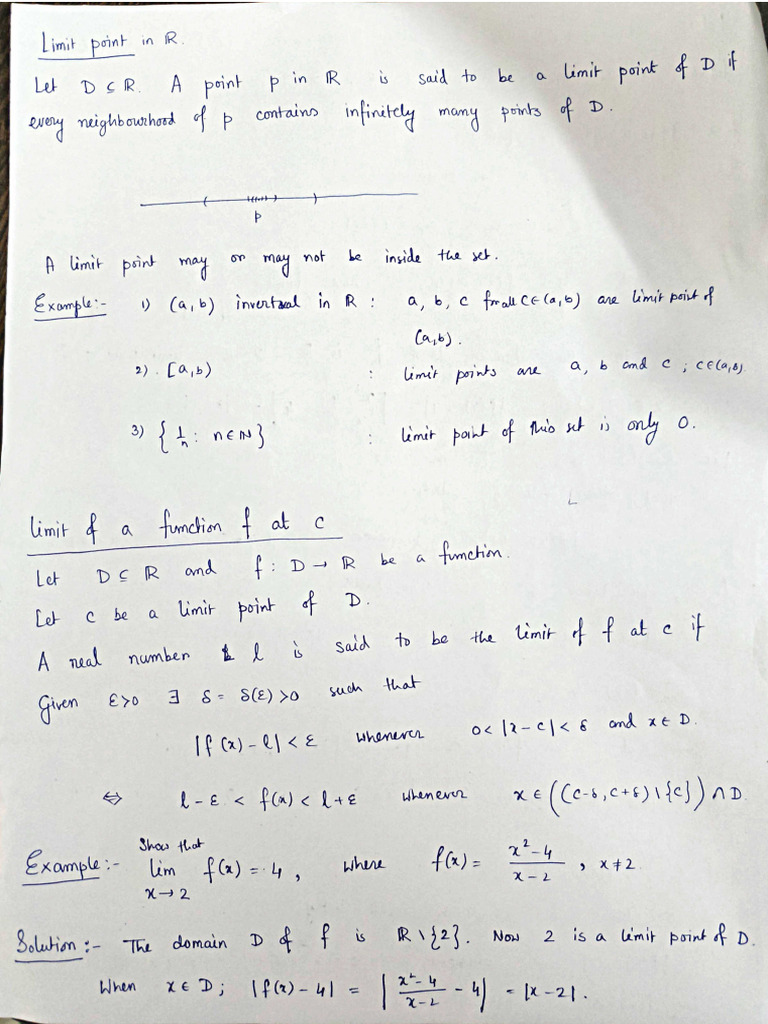 Limit point in ℝ.
Let D ⊆ ℝ. A point p in ℝ is said to be a limit point of D if
every neighbourhood of p contains infinitely many points of D.
p
A limit point may or may not be inside the set.
Example:- 1) (a, b) invertval in ℝ : a, b, c for all c ∈ (a, b) are limit point of
(a, b).
2). [a, b) : limit points are a, b and c ; c ∈ (a, b)
3) { 1/n : n ∈ ℕ } : limit point of this set is only 0.
limit of a function f at c
Let D ⊆ ℝ and f : D → ℝ be a function.
Let c be a limit point of D.
A real number l is said to be the limit of f at c if
Given ε>0 ∃ δ = δ(ε) >0 such that
|f(x) - l| < ε whenever 0 < |x - c| < δ and x ∈ D.
⇔ l - ε < f(x) < l + ε whenever x ∈ ((c-δ, c+δ) \ {c}) ∩ D
Show that
Example:- lim x→2 f(x) = 4, where f(x) = (x² - 4)/(x - 2), x ≠ 2
Solution:- The domain D of f is ℝ \ {2}. Now 2 is a limit point of D.
When x ∈ D; |f(x) - 4| = |(x² - 4)/(x - 2) - 4| = |x - 2|.